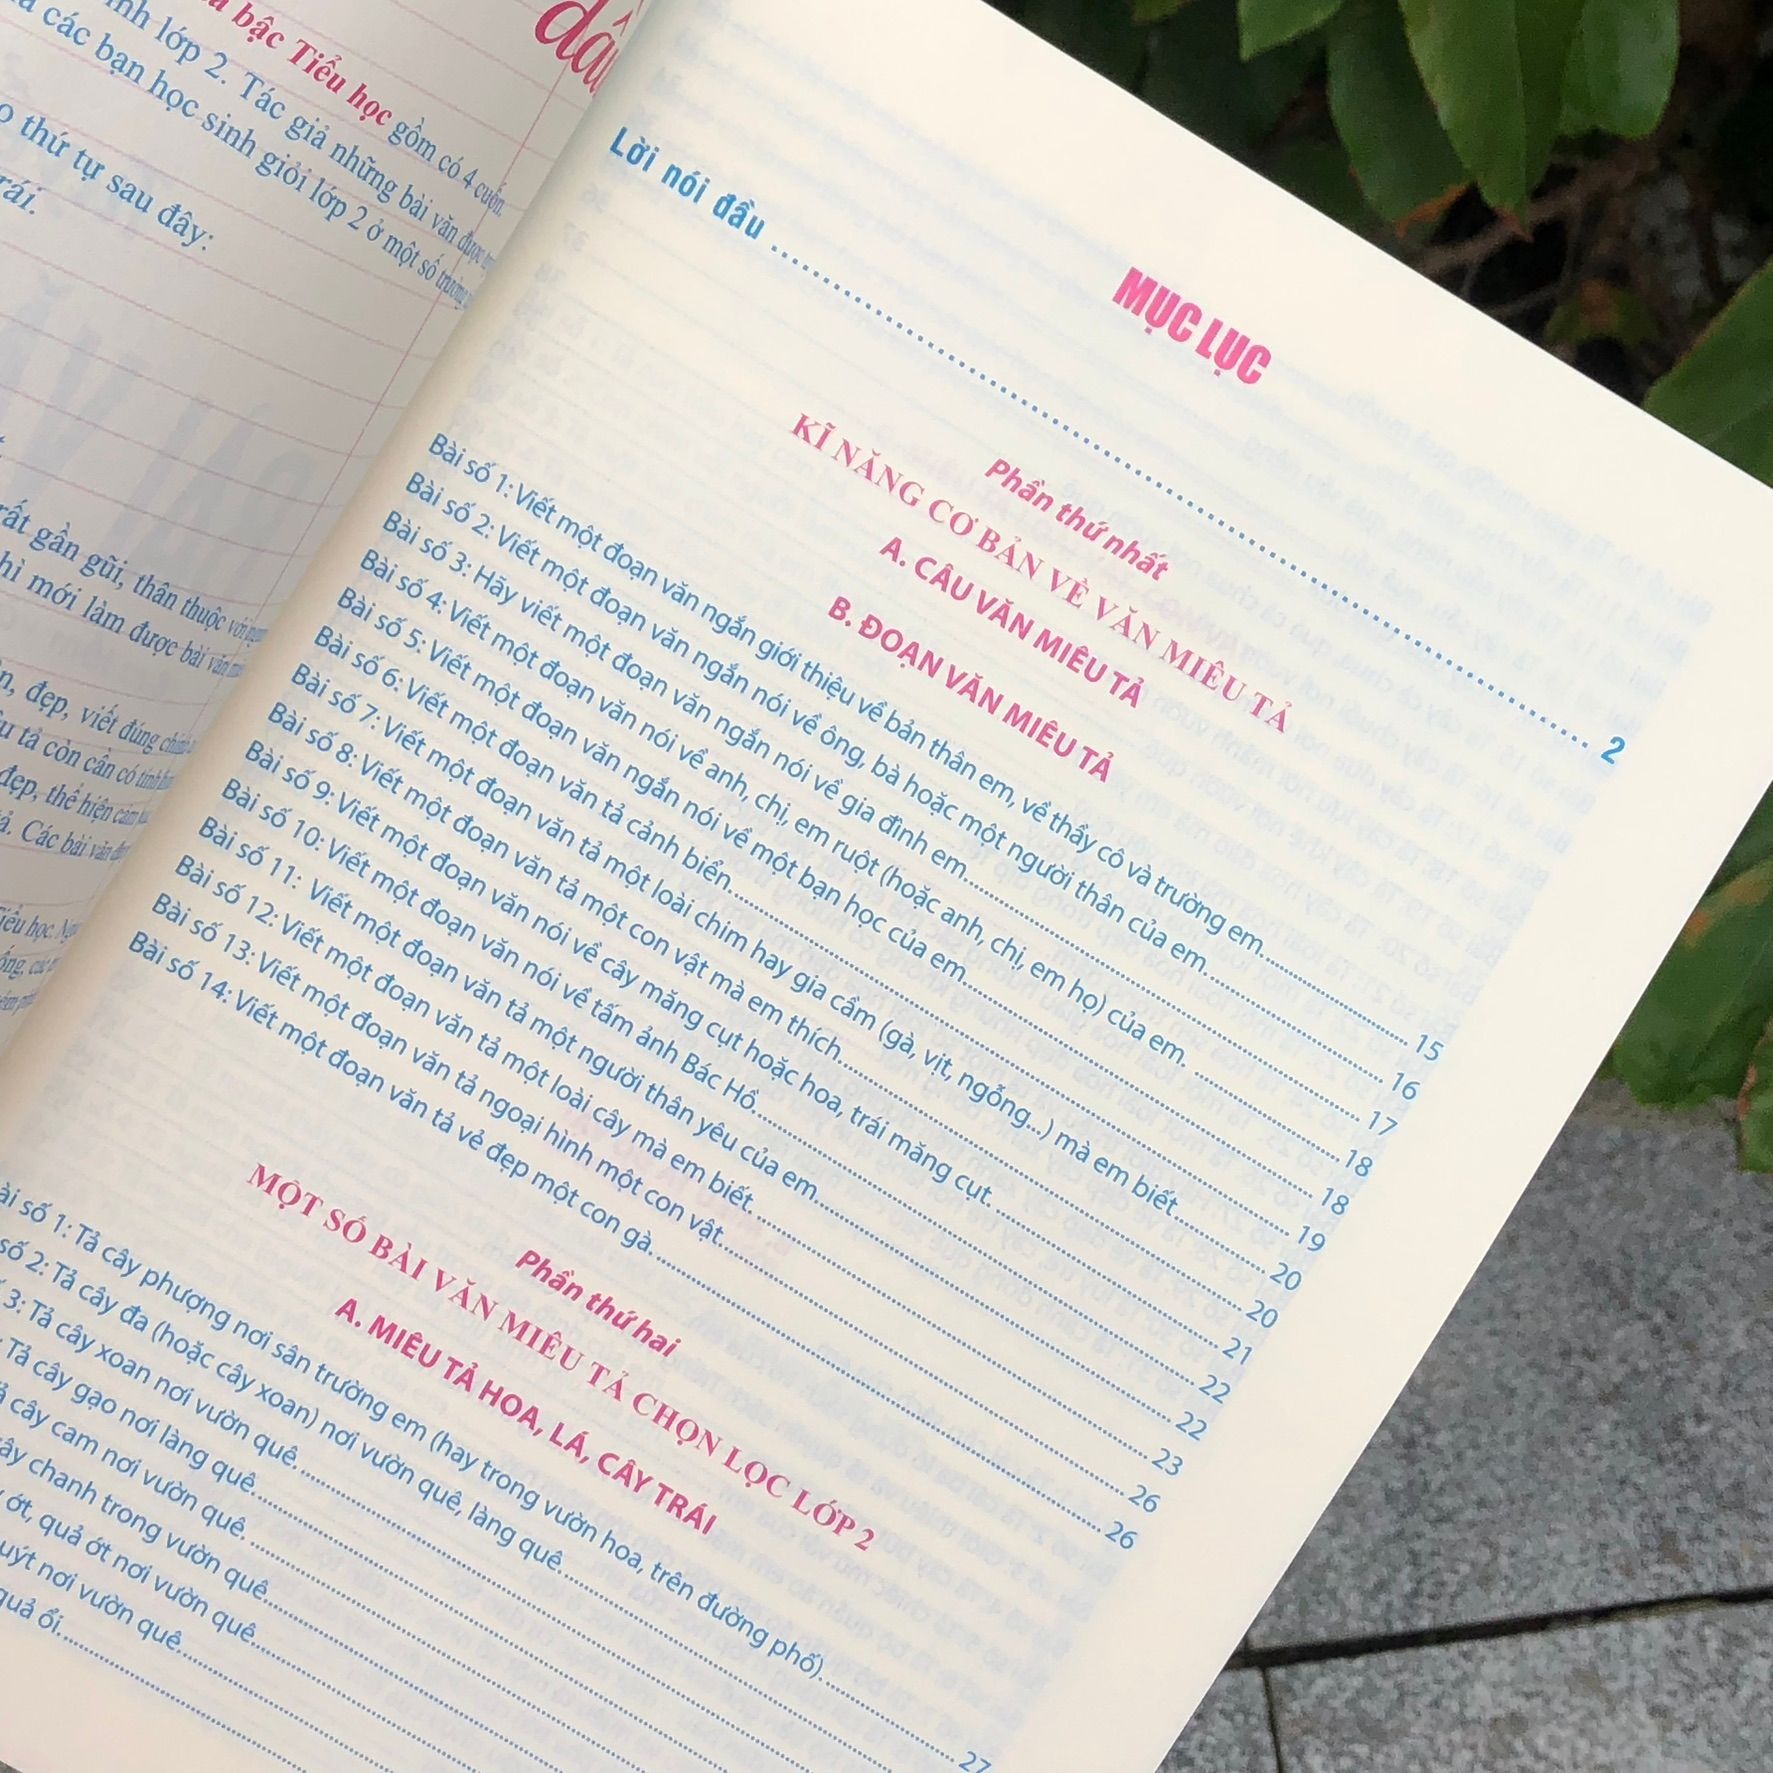 dấu
bậc Tiểu học gồm có 4 cuốn.
lớp 2. Tác giả những bài văn được
các bạn học sinh giỏi lớp 2 ở một số trường
thứ tự sau đây:
rất gần gũi, thân thuộc với
mới làm được bài văn
đẹp, viết đúng
tả còn cần có tính
đẹp, thể hiện cảm
Các bài văn
Tiểu học.
MỤC LỤC
Lời nói đầu ........................ 2
Phần thứ nhất
KĨ NĂNG CƠ BẢN VỀ VĂN MIÊU TẢ
A. CÂU VĂN MIÊU TẢ
B. ĐOẠN VĂN MIÊU TẢ
Bài số 1: Viết một đoạn văn ngắn giới thiệu về bản thân em, về thầy cô và trường em........................ 15
Bài số 2: Viết một đoạn văn ngắn nói về ông, bà hoặc một người thân của em........................ 16
Bài số 3: Hãy viết một đoạn văn ngắn nói về gia đình em........................ 17
Bài số 4: Viết một đoạn văn nói về anh, chị, em ruột (hoặc anh, chị, em họ) của em. ........................ 18
Bài số 5: Viết một đoạn văn ngắn nói về một bạn học của em........................ 18
Bài số 6: Viết một đoạn văn tả cảnh biển........................ 19
Bài số 7: Viết một đoạn văn tả một loài chim hay gia cầm (gà, vịt, ngỗng...) mà em biết........................ 20
Bài số 8: Viết một đoạn văn tả một con vật mà em thích........................ 20
Bài số 9: Viết một đoạn văn nói về cây măng cụt hoặc hoa, trái măng cụt. ........................ 21
Bài số 10: Viết một đoạn văn nói về tấm ảnh Bác Hồ........................ 22
Bài số 11: Viết một đoạn văn tả một người thân yêu của em........................ 22
Bài số 12: Viết một đoạn văn tả một loài cây mà em biết........................ 23
Bài số 13: Viết một đoạn văn tả ngoại hình một con vật........................ 26
Bài số 14: Viết một đoạn văn tả vẻ đẹp một con gà........................ 26
Phần thứ hai
MỘT SỐ BÀI VĂN MIÊU TẢ CHỌN LỌC LỚP 2
A. MIÊU TẢ HOA, LÁ, CÂY TRÁI
số 1: Tả cây phượng nơi sân trường em (hay trong vườn hoa, trên đường phố)........................ 27
số 2: Tả cây đa (hoặc cây xoan) nơi vườn quê, làng quê........................
3: Tả cây xoan nơi vườn quê........................
Tả cây gạo nơi làng quê........................
cây cam nơi vườn quê. ........................
chanh trong vườn quê........................
ớt, quả ớt nơi vườn quê........................
nơi vườn quê........................
quả ổi........................